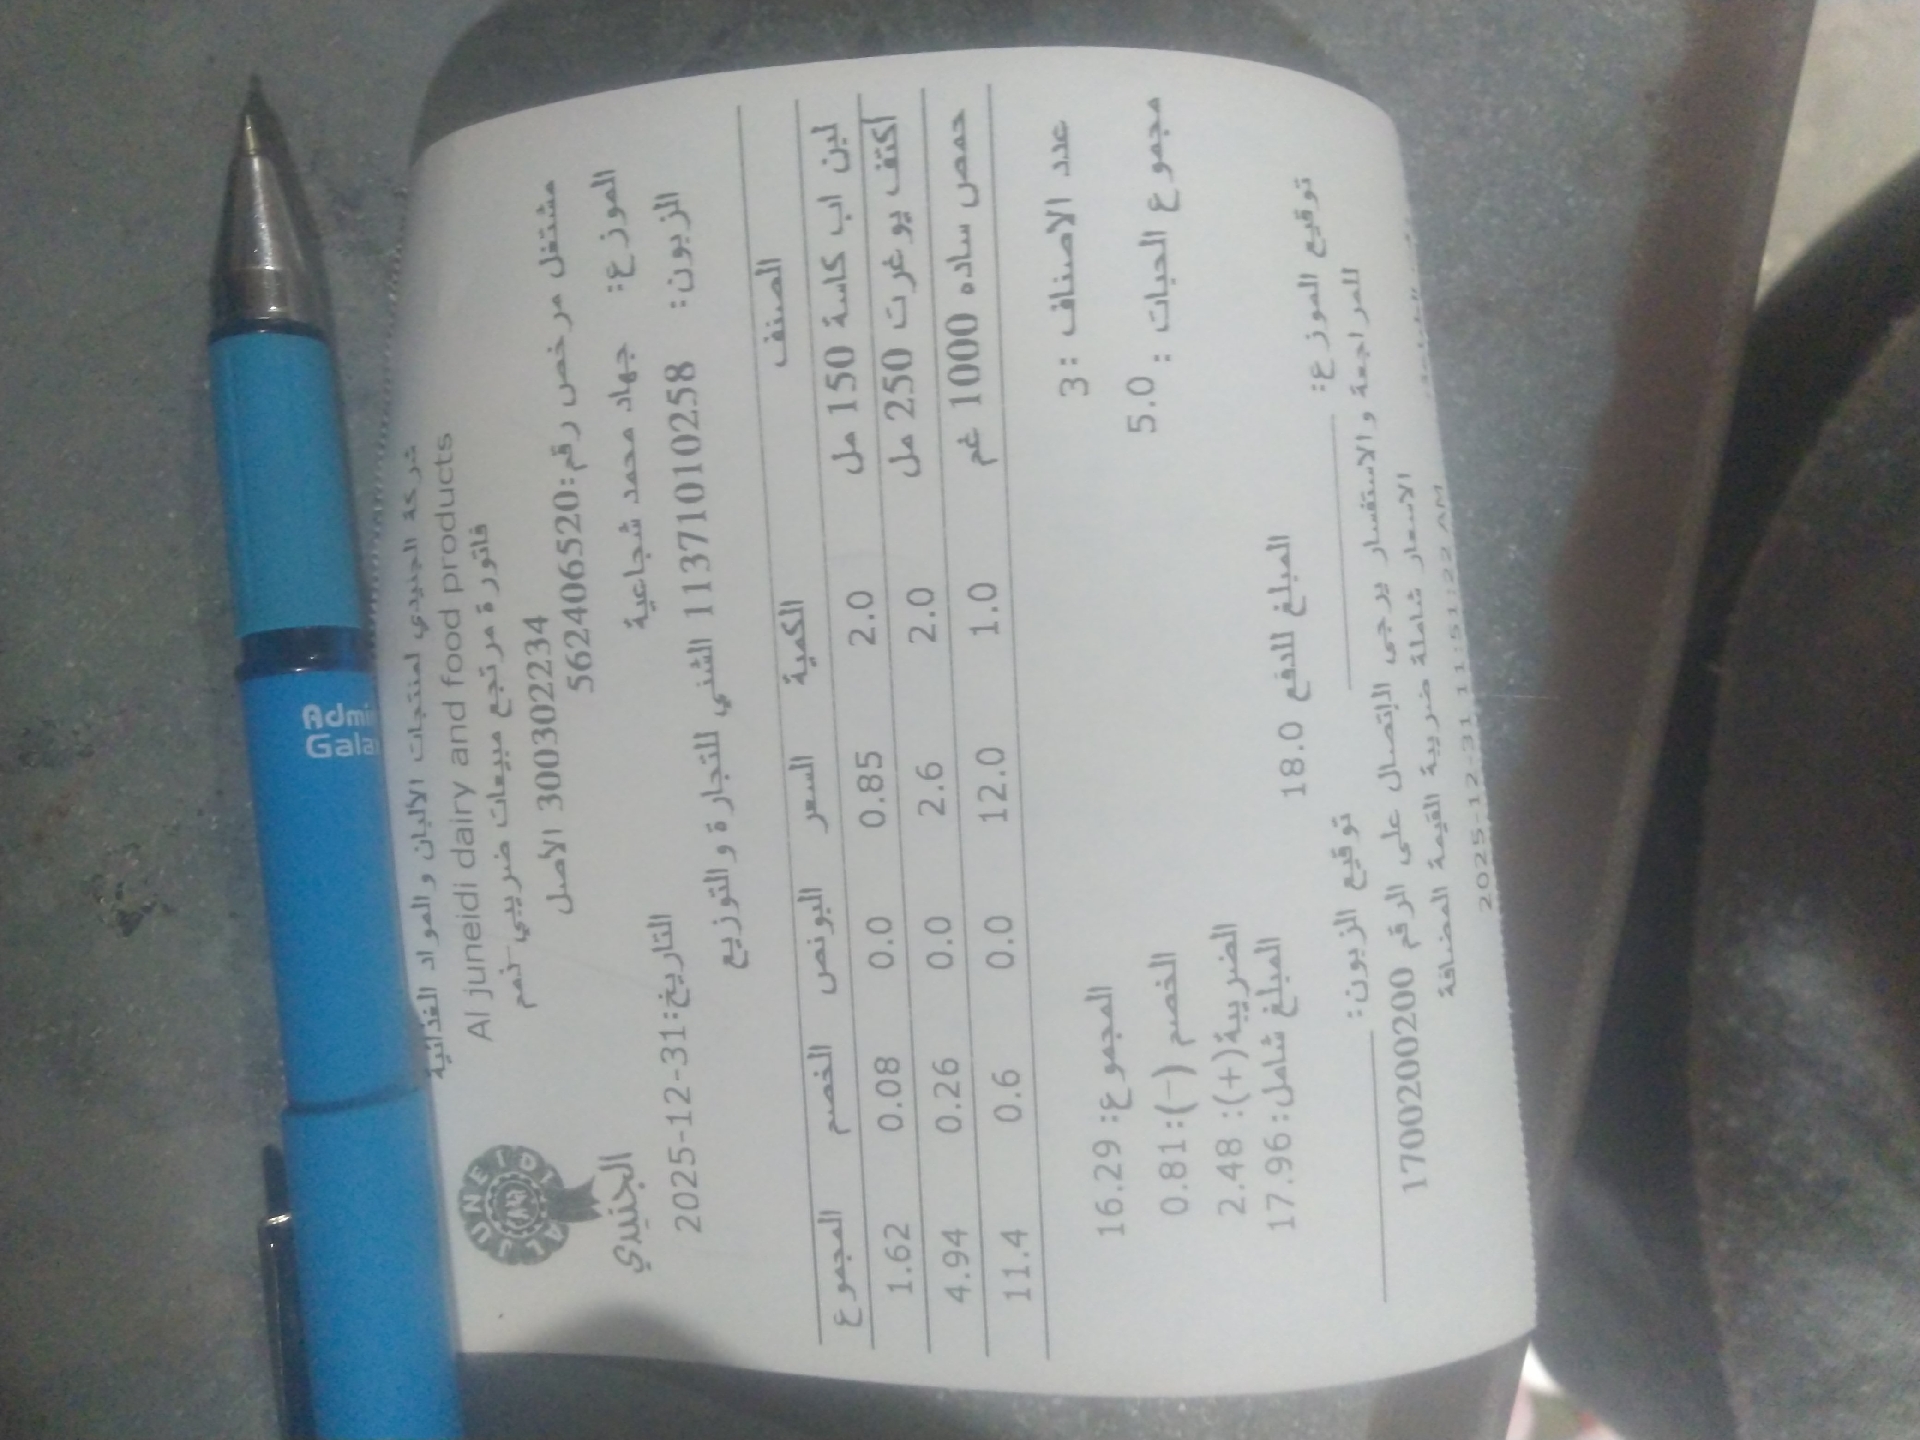 شركة الجنيدي لمنتجات الالبان و المواد الغذائية
Al juneidi dairy and food products
فاتورة مرتجع مبيعات ضريبي-ذمم
مشتغل مرخص رقم:562406520
300302234 الاصل
الموزع: جهاد محمد شجاعية
AL JUNEIDI
الجنيدي
التاريخ:2025-12-31
الزبون: 1137101010258 الشني للتجارة و التوزيع
الصنف الكمية السعر البونص الخصم المجموع
لبن اب كاسة 150 مل 2.0 0.85 0.0 0.08 1.62
أكتف يوغرت 250 مل 2.0 2.6 0.0 0.26 4.94
حمص ساده 1000 غم 1.0 12.0 0.0 0.6 11.4
عدد الاصناف : 3
المجموع: 16.29
مجموع الحبات : 5.0
الخصم (-):0.81
الضريبة(+): 2.48
المبلغ شامل: 17.96
المبلغ للدفع 18.0
توقيع الموزع:
توقيع الزبون:
للمراجعة و الاستفسار يرجى الإتصال على الرقم 1700200200
الاسعار شاملة ضريبة القيمة المضافة
2025-12-31 11:51:22 AM
Admi
Gala